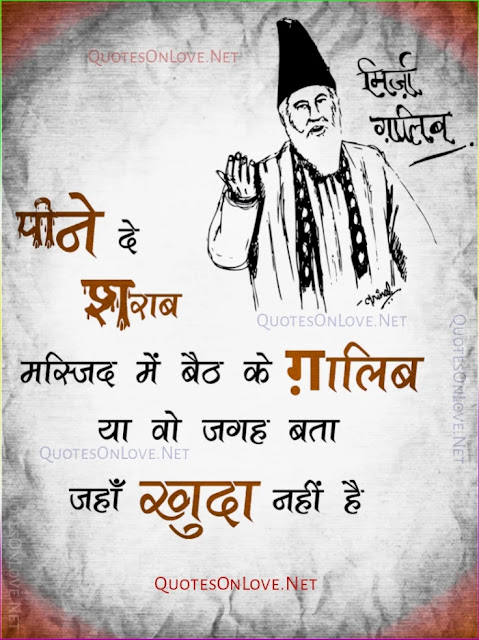 QUOTESONLOVE.NET
मिर्ज़ा
ग़ालिब
पीने दे
शराब
QUOTESONLOVE.NET
मस्जिद में बैठ के ग़ालिब
या वो जगह बता
QUOTESONLOVE.NET
जहाँ खुदा नहीं है
QUOTESONLOVE.NET
QUOTESONLOVE.NET